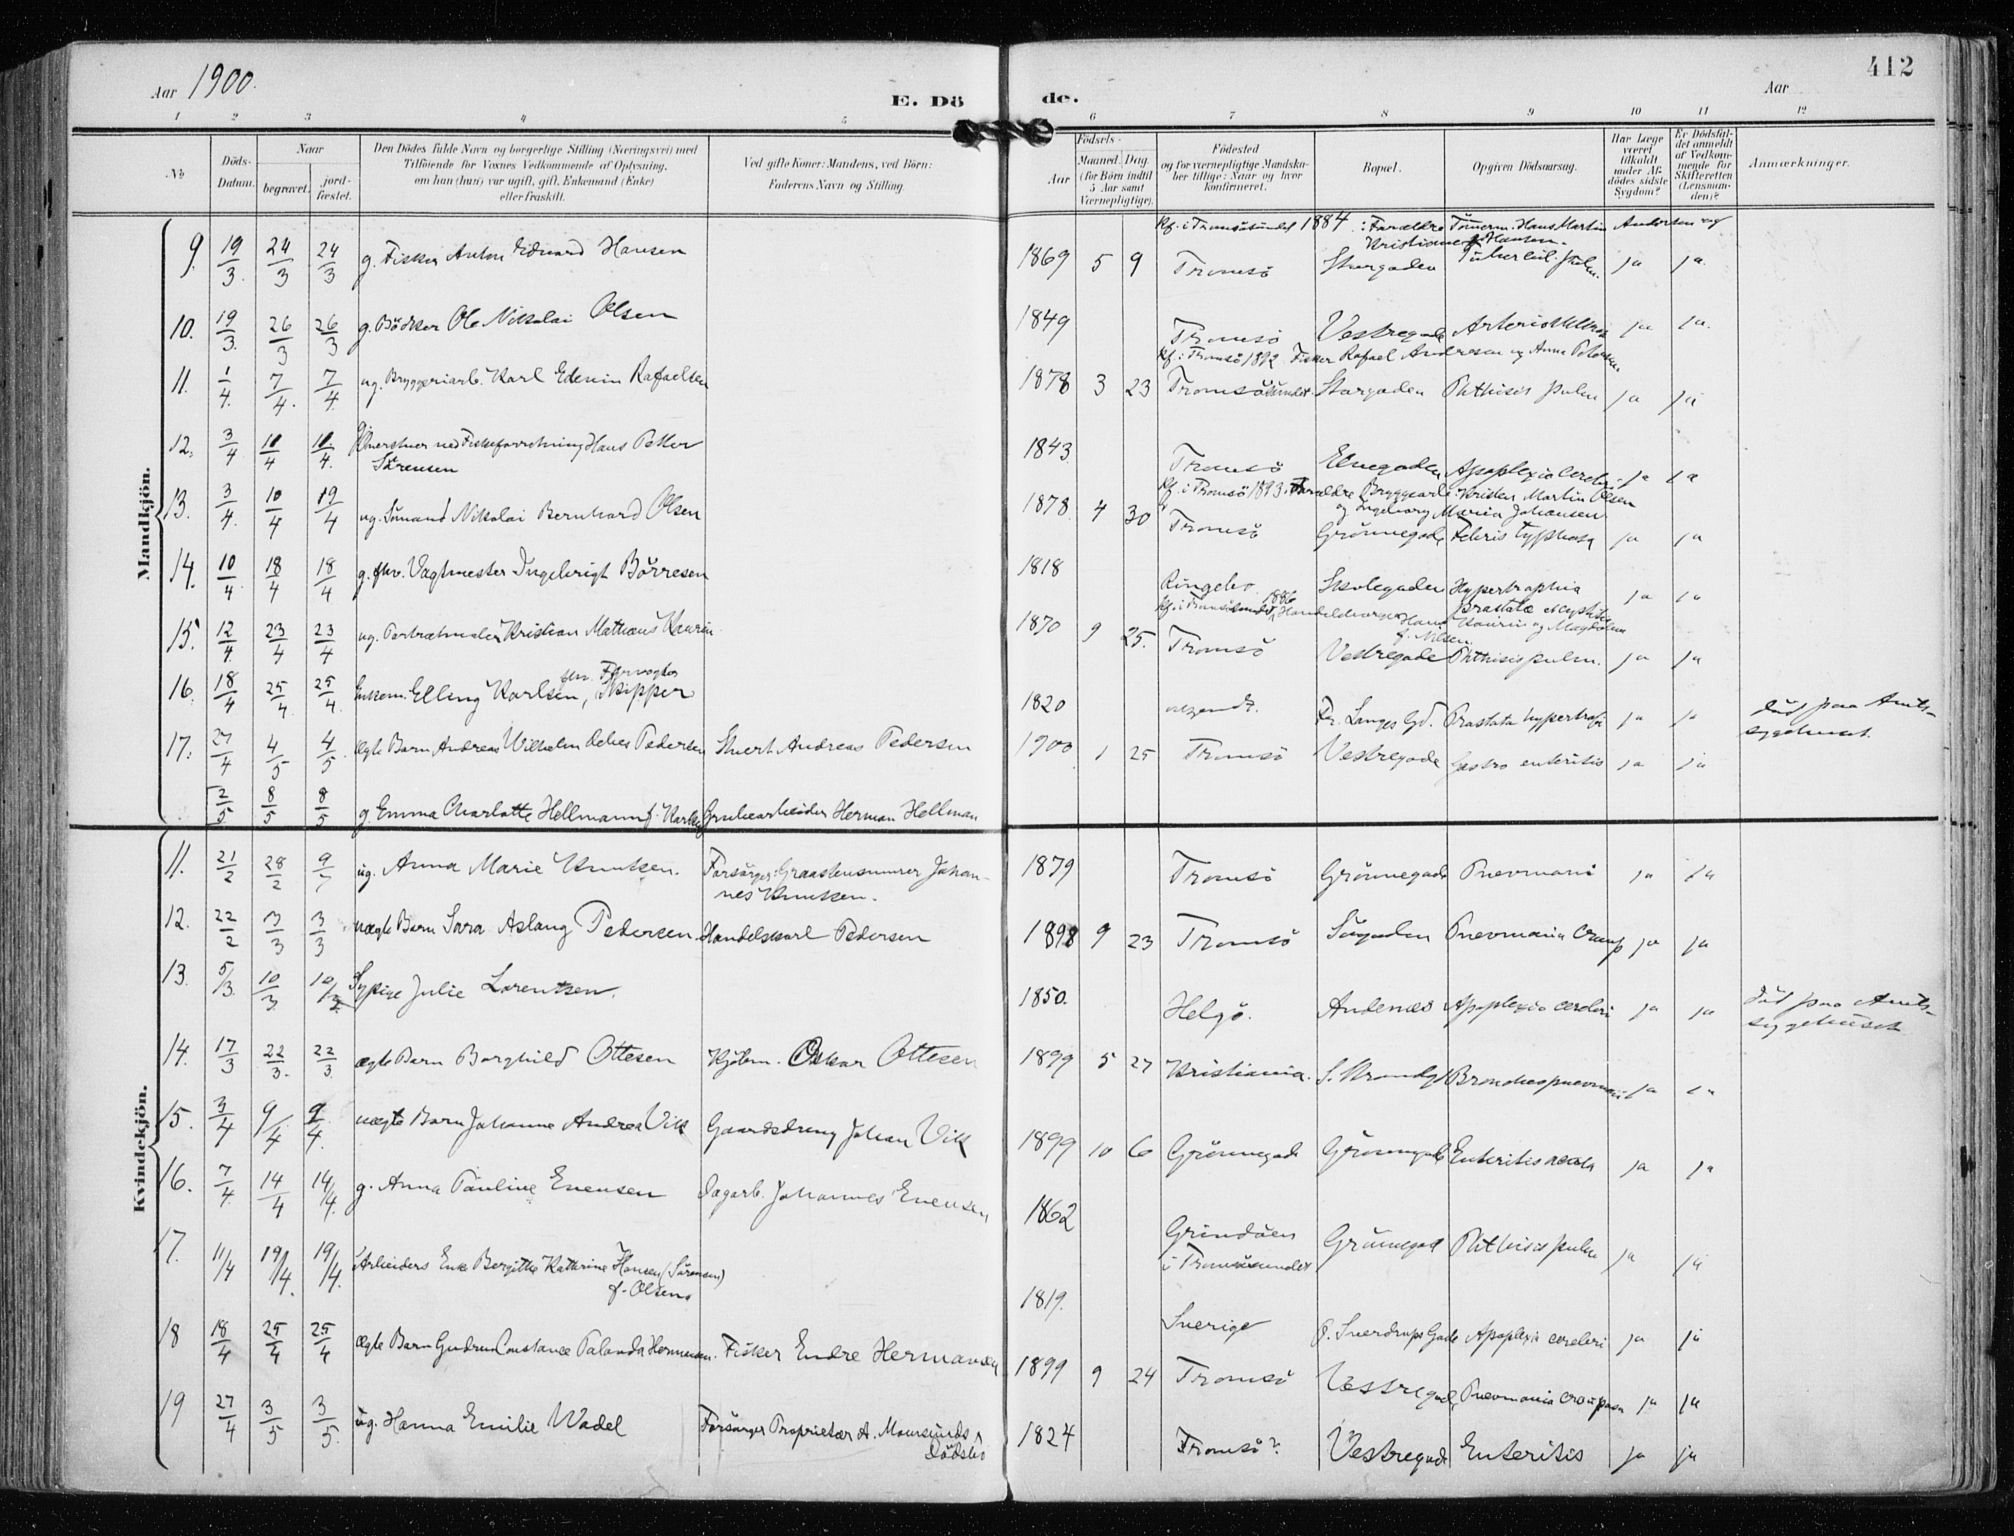 Aar 1900.
E. Döde.
Aar
412
1 2 3 4 5 6 7 8 9 10 11 12
No
Döds-Datum.
Naar
begravet.
jord-fæstet.
Den Dödes fulde Navn og borgerlige Stilling (Næringsvei) med
Tilföiende for Voxnes Vedkommende af Oplysning,
om han (hun) var ugift, gift, Enkemand (Enke)
eller fraskilt.
Ved gifte Koner: Mandens, ved Börn:
Faderens Navn og Stilling.
Födsels-
Aar
Maaned. Dag.
(for Börn indtil
5 Aar samt
Værnepligtige).
Födested
og for værnepligtige Mandska-
ber tillige: Naar og hvor
konfirmeret.
Bopæl.
Opgiven Dödsaarsag.
Har Læge
været
tilkaldt
under Af-
dödes sidste
Sygdom?
Er Dödsfal-
det anmeldt
af Vedkom-
mende for
Skifteretten
(Lensman-
den)?
Anmærkninger.
Mandkjön.
Kf. i Tromsösundet 1884 : Forældre Tömerm. Hans Martin Andersen og
Kristiane f. Hansen.
9. 19/3 24/3 24/3 g. Fisker Anton Edvard Hansen 1869 5 9 Tromsö Storgaden Tubercul. pulm. ja ja.
10. 19/3 26/3 26/3 g. Bödker Ole Nikolai Olsen 1849 Tromsö Vestregade ja ja.
Kf. i Tromsö 1892. Fisker Rafael Andresen og Anna Petersen
11. 1/4 7/4 7/4 ug. Bryggeriarb. Karl Edevin Rafaelsen 1878 3 23 Tromsösundet Storgaden Phthisis pulm ja ja
12. 3/4 11/4 11/4 ved Fiskeforretning Hans Petter
Sörensen 1843 Tromsö Elvegaden Apoplexia cerebri ja ja
Kf. i Tromsö 1893. Forældre Bryggearb. Kristen Martin Olsen
og Ingeborg Maria Johansen.
13. 3/4 10/4 19/4 ug. Sömand Nikolai Bernhard Olsen 1878 4 30 Tromsö Grönnegade Febris typhosa ja ja
14. 10/4 18/4 18/4 g. fhv. Vagtmester Ingebrigt Börresen 1818 Ringebo Skolegaden Hypertrophia
prostatæ ja ja
Kf. i Tromsösundet 1886, Hans Kaurin og Magdalena
f. Nilsen
15. 12/4 23/4 23/4 ug. Portrætmaler Kristian Mathæus Kaurin 1870 9 25. Tromsö Vestregade Phthisis pulm. ja ja
fhv. Fyrvogter
16. 18/4 25/4 25/4 Enkem. Elling Karlsen, Skipper 1820 Fr. Langes Gd. Prostata hypertrofi ja ja Död paa Amts-
sygehuset.
17. 27/4 4/5 4/5 ægte Barn, Andreas Wilhelm Pedersen Stuert Andreas Pedersen 1900 1 25 Tromsö Vestregade Gastro enteritis ja ja
2/5 8/5 8/5 g. Emma Charlotte Hellman f. Grubearbeider Herman Hellman
Kvindekjön.
11. 21/2 28/2 9/ ug. Anna Marie Knutsen. Forsörger: Graastensmurer Johan-
nes Knutsen. 1879 Tromsö Grönnegade Pnevmoni ja ja
12. 22/2 3/3 3/3 uægte Barn Sara Aslaug Pedersen Handelskarl Pedersen 1898 9 23 Tromsö Sögaden Pnevmonia croup ja ja
13. 5/3 10/3 10/3 Sypige Julie Lorentsen. 1850. Helgö. Andenæs Apoplexia cerebri ja ja Död paa Amts-
sygehuset
14. 17/3 22/3. 22/3 ægte Barn Borghild Ottesen Kjöbm. Oskar Ottesen 1899 5 27 Kristiania. S. Strandg. ja ja
15. 3/4 9/4 9/4. uægte Barn Johanne Andrea Vik Gaardsdreng Johan Vik 1899 10 6 Grönnegade Grönnegade Enteritis acuta ja ja
16. 7/4 14/4 14/4. g. Anna Pauline Evensen Dagarb. Johannes Evensen 1862 Grindöen
i Tromsösundet Grönnegad Phthisis pulm ja ja
17. 11/4 19/4. 19/4. Arbeiders Enke Bergitte Kathrine Hansen (Sörensen)
f. Olsen. 1819. Sverige J. Sverdrups Gade Apoplexia cerebri ja ja
18 18/4 25/4 25/4 ægte Barn Gudrun Constance Hermansen. Fisker Endre Hermansen 1899 9 24 Tromsö Vestregade Pnevmonia crouposa ja ja
19 27/4 3/5 3/5. ug. Hanna Emilie Wadel Forsörger Proprietær A. Moursunds
Dödsbo 1824 Tromsö? Vestregade Enteritis ja ja